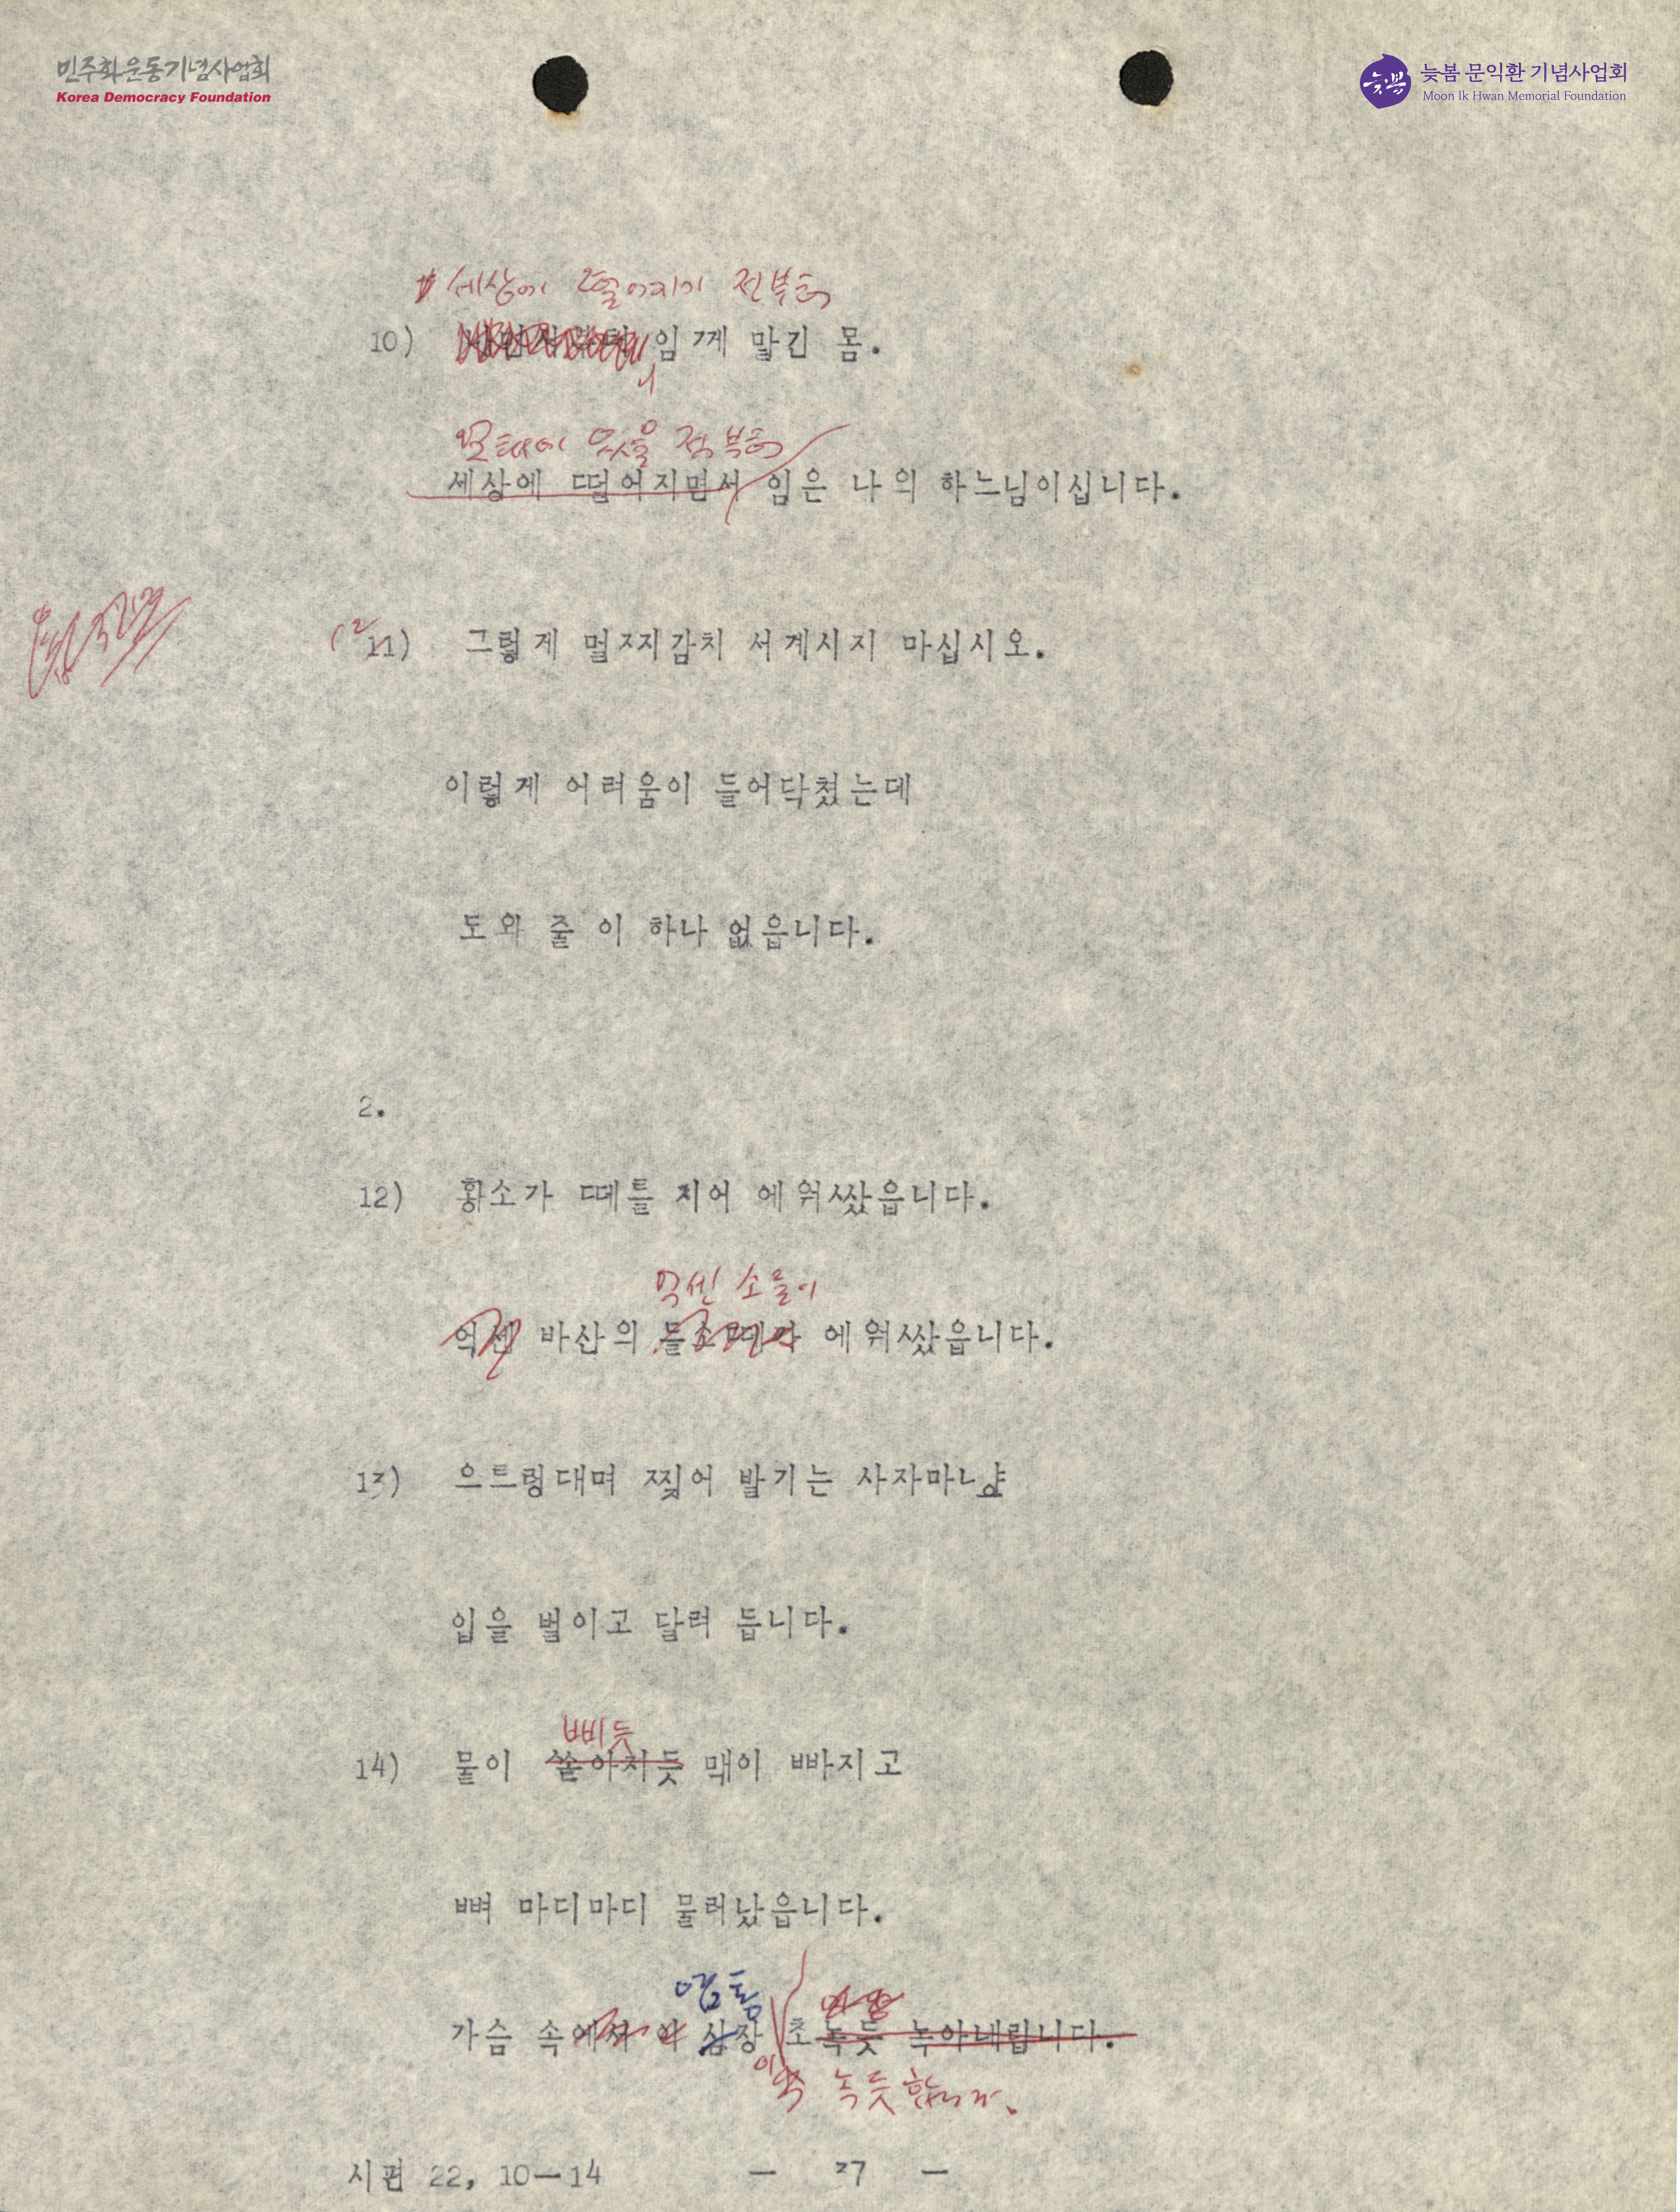 민주화운동기념사업회
Korea Democracy Foundation
늦봄
늦봄 문익환 기념사업회
Moon Ik Hwan Memorial Foundation
세상에 떨어지기 전부터
10) 임께 맡긴 몸.
니
모태에 있을 적부터
세상에 떨어지면서 임은 나의 하느님이십니다.
(2
11) 그렇게 멀찌감치 서계시지 마십시오.
이렇게 어려움이 들어닥쳤는데
도와 줄 이 하나 없읍니다.
2.
12) 황소가 떼를 지어 에워쌌읍니다.
억센 소들이
억센 바산의 들소떼가 에워쌌읍니다.
13) 으트렁대며 찢어 발기는 사자마냥
입을 벌이고 달려 듭니다.
삐듯
14) 물이 쏟아지듯 맥이 빠지고
뼈 마디마디 물러났읍니다.
염통
가슴 속에서 이 심장 초녹듯 녹아내립니다.
이 녹듯 합니다.
시편 22, 10—14 — 37 —